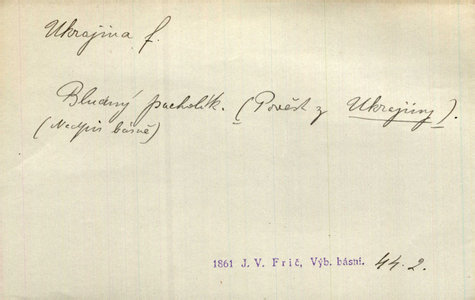 Ukrajina f.
Bludný pacholík. (Pověst z Ukrajiny).
(Nadpis básně)
1861 J. V. Frič, Výb. básní. 44. 2.